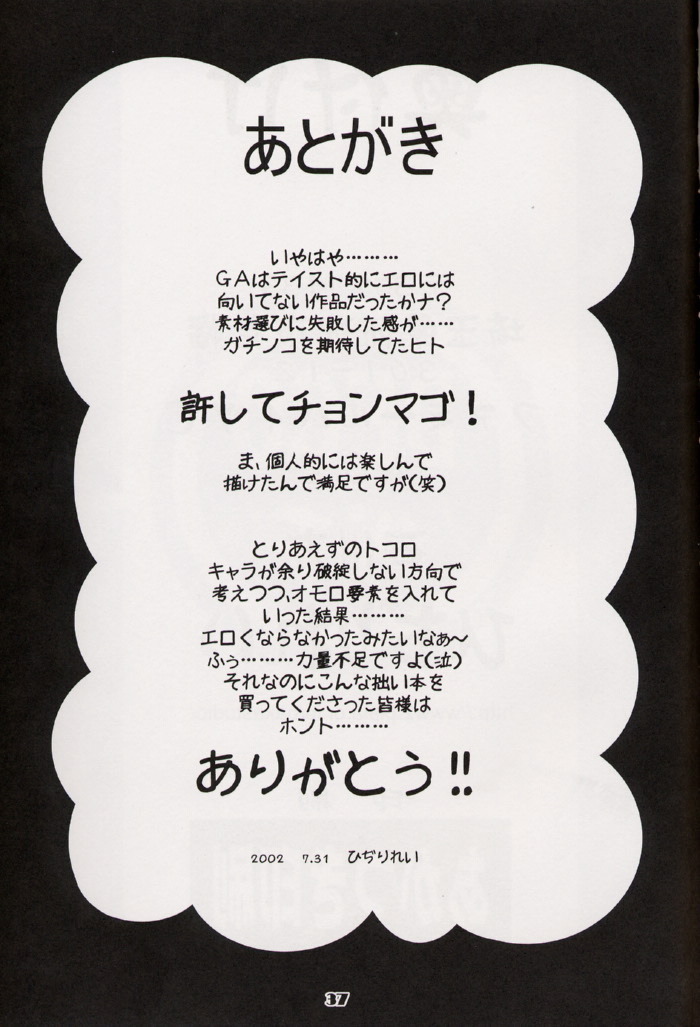 あとがき
いやはや………
GAはテイスト的にエロには
向いてない作品だったかナ？
素材選びに失敗した感が……
ガチンコを期待してたヒト
許してチョンマゴ！
ま、個人的には楽しんで
描けたんで満足ですが(笑)
とりあえずのトコロ
キャラが余り破綻しない方向で
考えつつ、オモロ要素を入れて
いった結果………
エロくならなかったみたいなぁ〜
ふぅ………力量不足ですよ(泣)
それなのにこんな拙い本を
買ってくださった皆様は
ホント………
ありがとう!!
2002 7.31 ひぢりれい
37